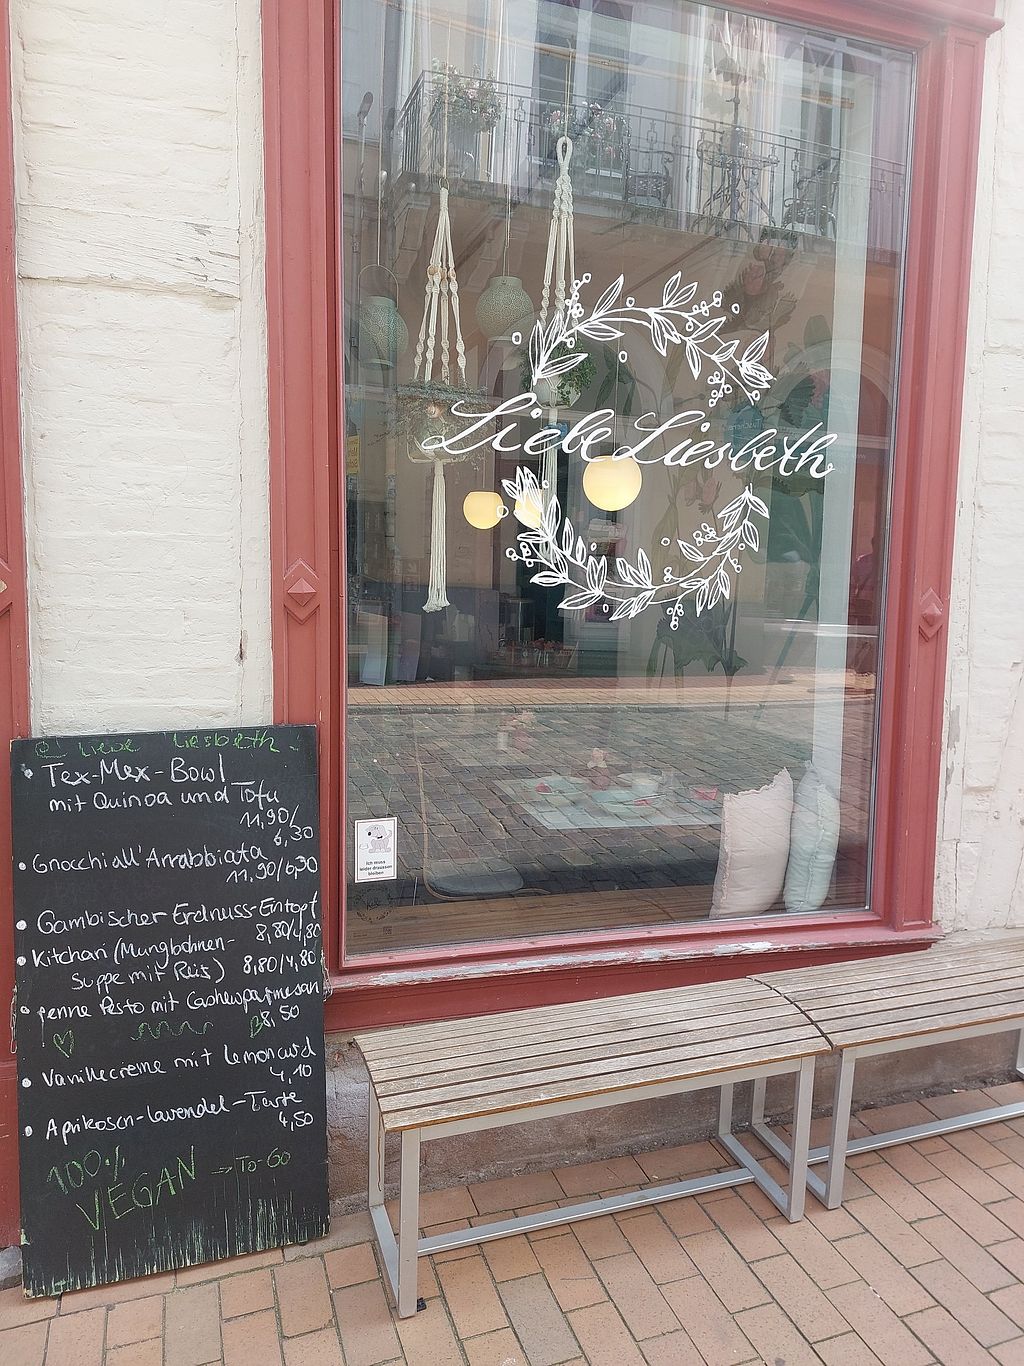 Liebe Liesbeth
@ Liebe Liesbeth
• Tex-Mex-Bowl
mit Quinoa und Tofu
11,90/
6,30
• Gnocchi all'Arrabbiata
11,90/6,30
• Gambischer Erdnuss-Eintopf
8,80/4,80
• Kitchari (Mungbohnen-
Suppe mit Reis) 8,80/4,80
• Penne Pesto mit Cashewparmesan
8,50
• Vanillecreme mit Lemoncurd
4,10
• Aprikosen-Lavendel-Tarte
4,50
100%
VEGAN → To-Go
Ich muss
leider draussen
bleiben